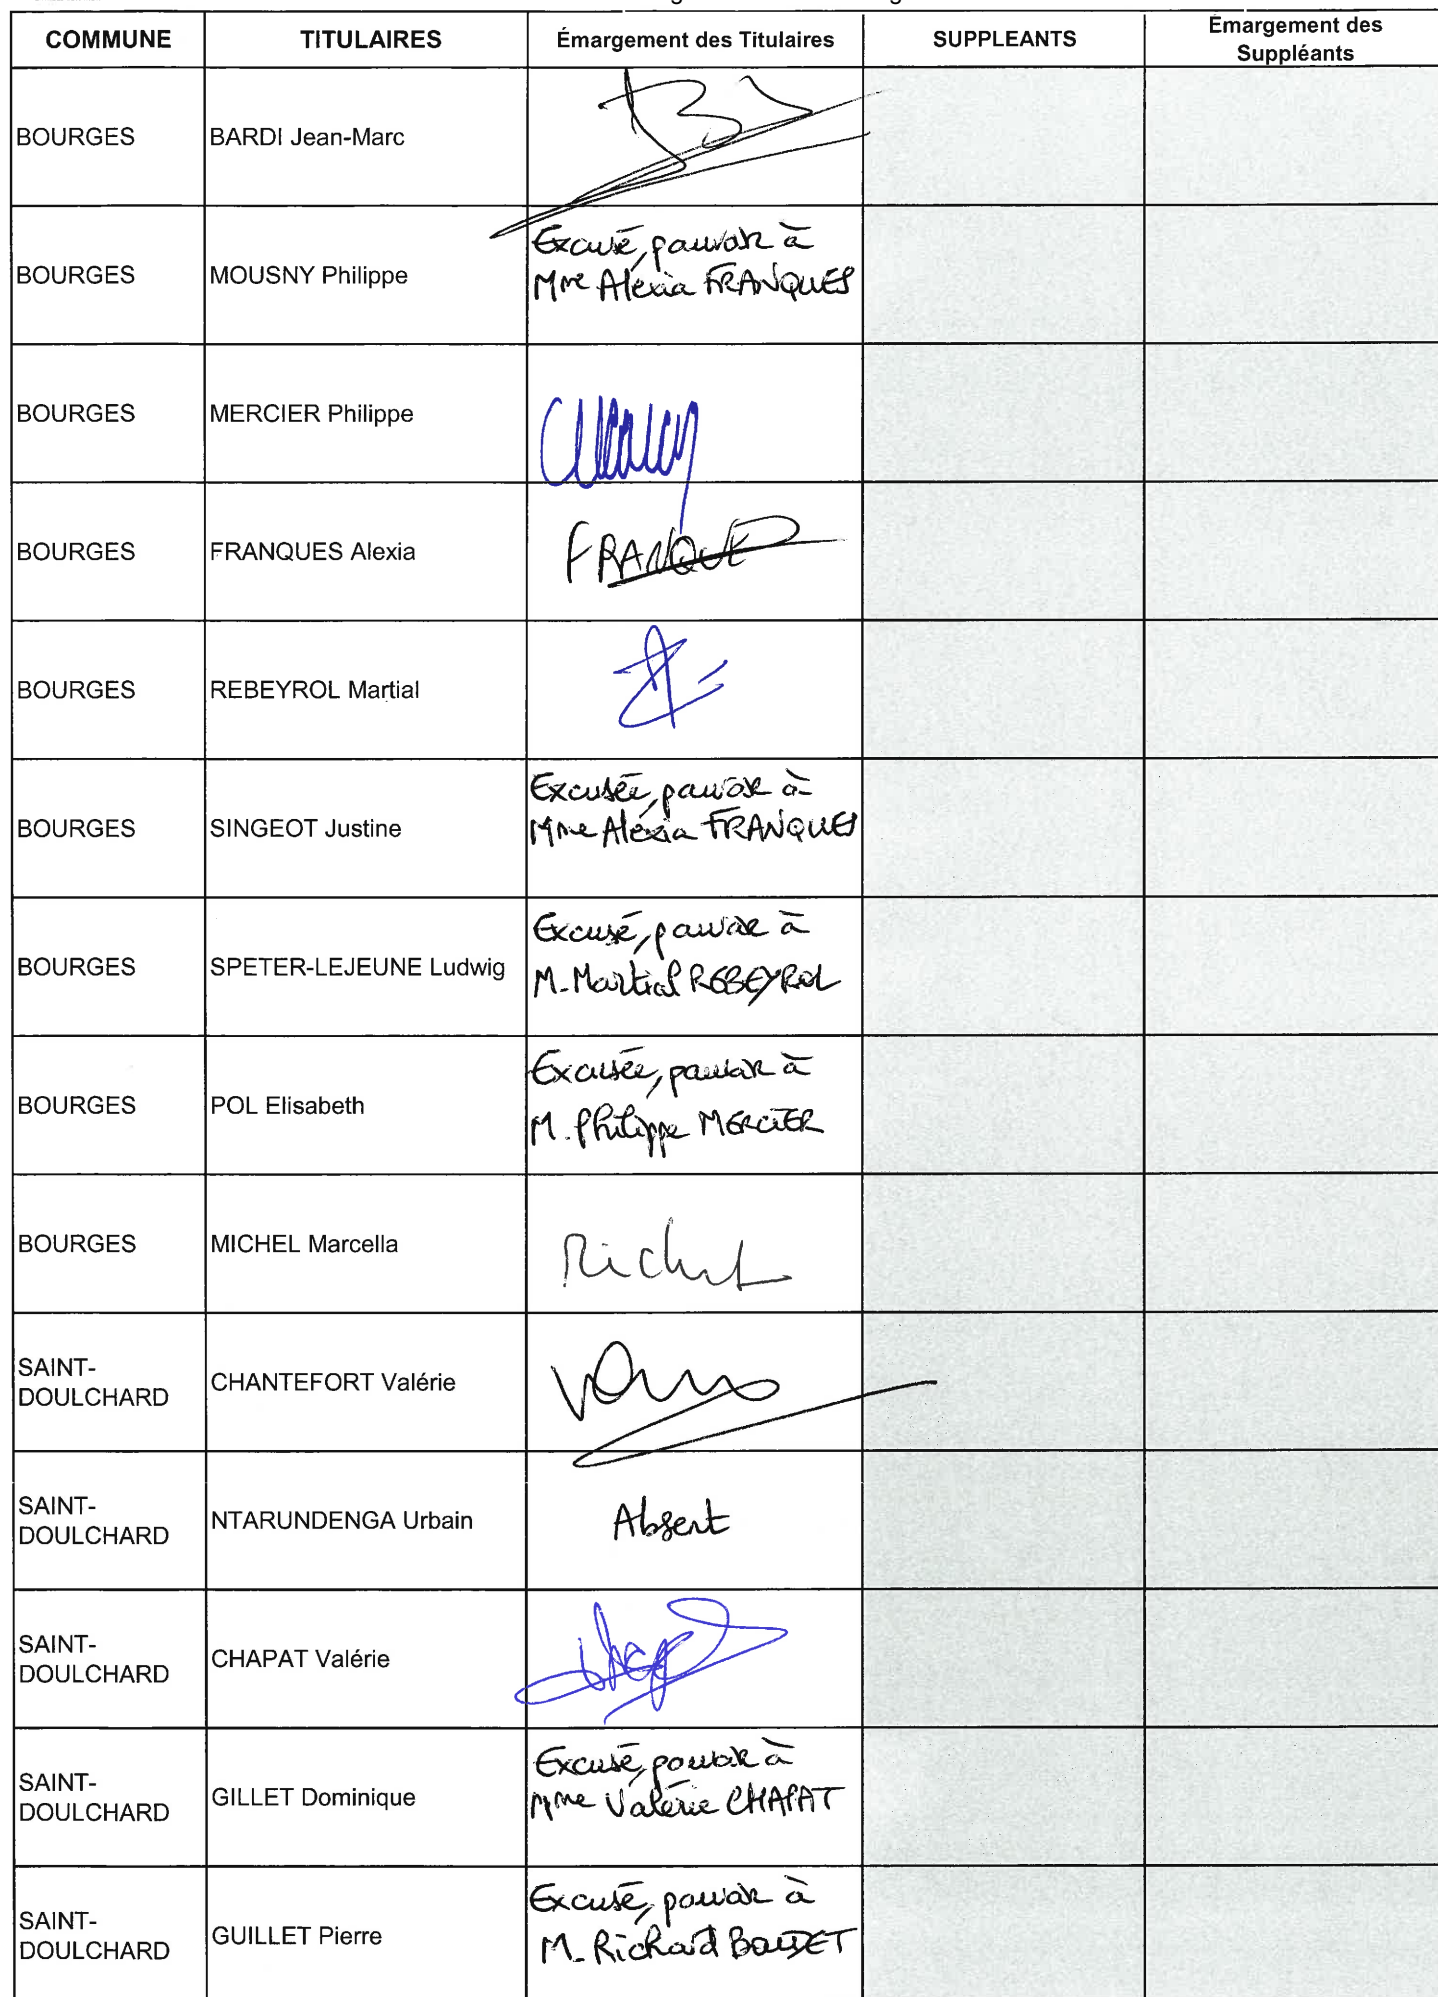 COMMUNE TITULAIRES Émargement des Titulaires SUPPLEANTS Émargement des
Suppléants
BOURGES BARDI Jean-Marc
BOURGES MOUSNY Philippe Excusé, pouvoir à
Mme Alexia FRANQUES
BOURGES MERCIER Philippe
BOURGES FRANQUES Alexia FRANQUES
BOURGES REBEYROL Martial
BOURGES SINGEOT Justine Excusée, pouvoir à
Mme Alexia FRANQUES
BOURGES SPETER-LEJEUNE Ludwig Excusé, pouvoir à
M. Martial REBEYROL
BOURGES POL Elisabeth Excusée, pouvoir à
M. Philippe MERCIER
BOURGES MICHEL Marcella Michel
SAINT-
DOULCHARD CHANTEFORT Valérie
SAINT-
DOULCHARD NTARUNDENGA Urbain Absent
SAINT-
DOULCHARD CHAPAT Valérie
SAINT-
DOULCHARD GILLET Dominique Excusé, pouvoir à
Mme Valérie CHAPAT
SAINT-
DOULCHARD GUILLET Pierre Excusé, pouvoir à
M. Richard BOUDET